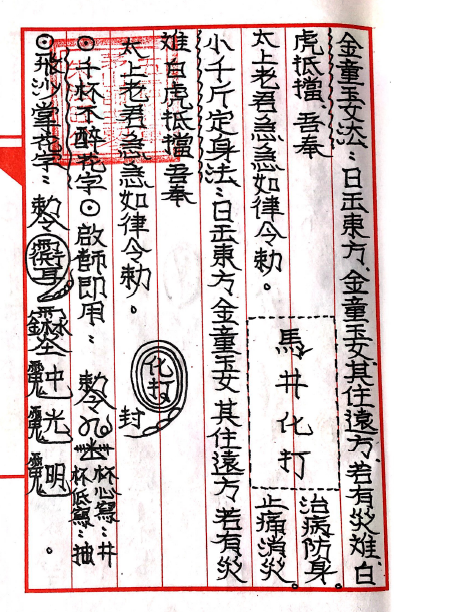 金童玉女法：日出東方、金童玉女其住遠方、若有災難、白
虎抵擋 吾奉
太上老君急急如律令勅。
馬井化打
治病防身。
止痛消災。
小千斤定身法：日出東方、金童玉女、其住遠方、若有災
难白虎抵擋吾奉
太上老君急急如律令勅。
化打
封
⊙千杯不醉花字⊙啟師即用： 勅令
杯心寫：井
杯底寫：抽
⊙飛沙掌花字： 勅令
中光明。